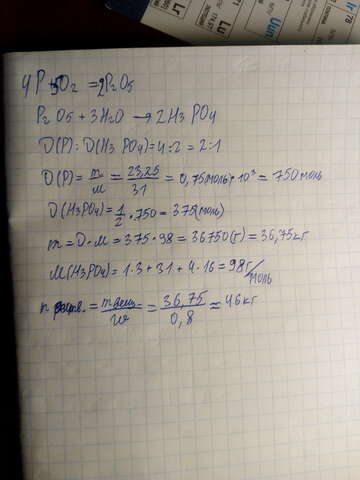 Lr
Lu
Uun
Ir
78
4P + 5O₂ = 2P₂O₅
P₂O₅ + 3H₂O → 2H₃PO₄
υ(P) : υ(H₃PO₄) = 4:2 = 2:1
υ(P) = m/M = 23,25/31 = 0,75моль · 10³ = 750моль
υ(H₃PO₄) = 1/2 · 750 = 375(моль)
m = υ · M = 375 · 98 = 36750(г) = 36,75кг
M(H₃PO₄) = 1·3 + 31 + 4·16 = 98г/моль
m раств. = mвещ./w = 36,75/0,8 ≈ 46кг